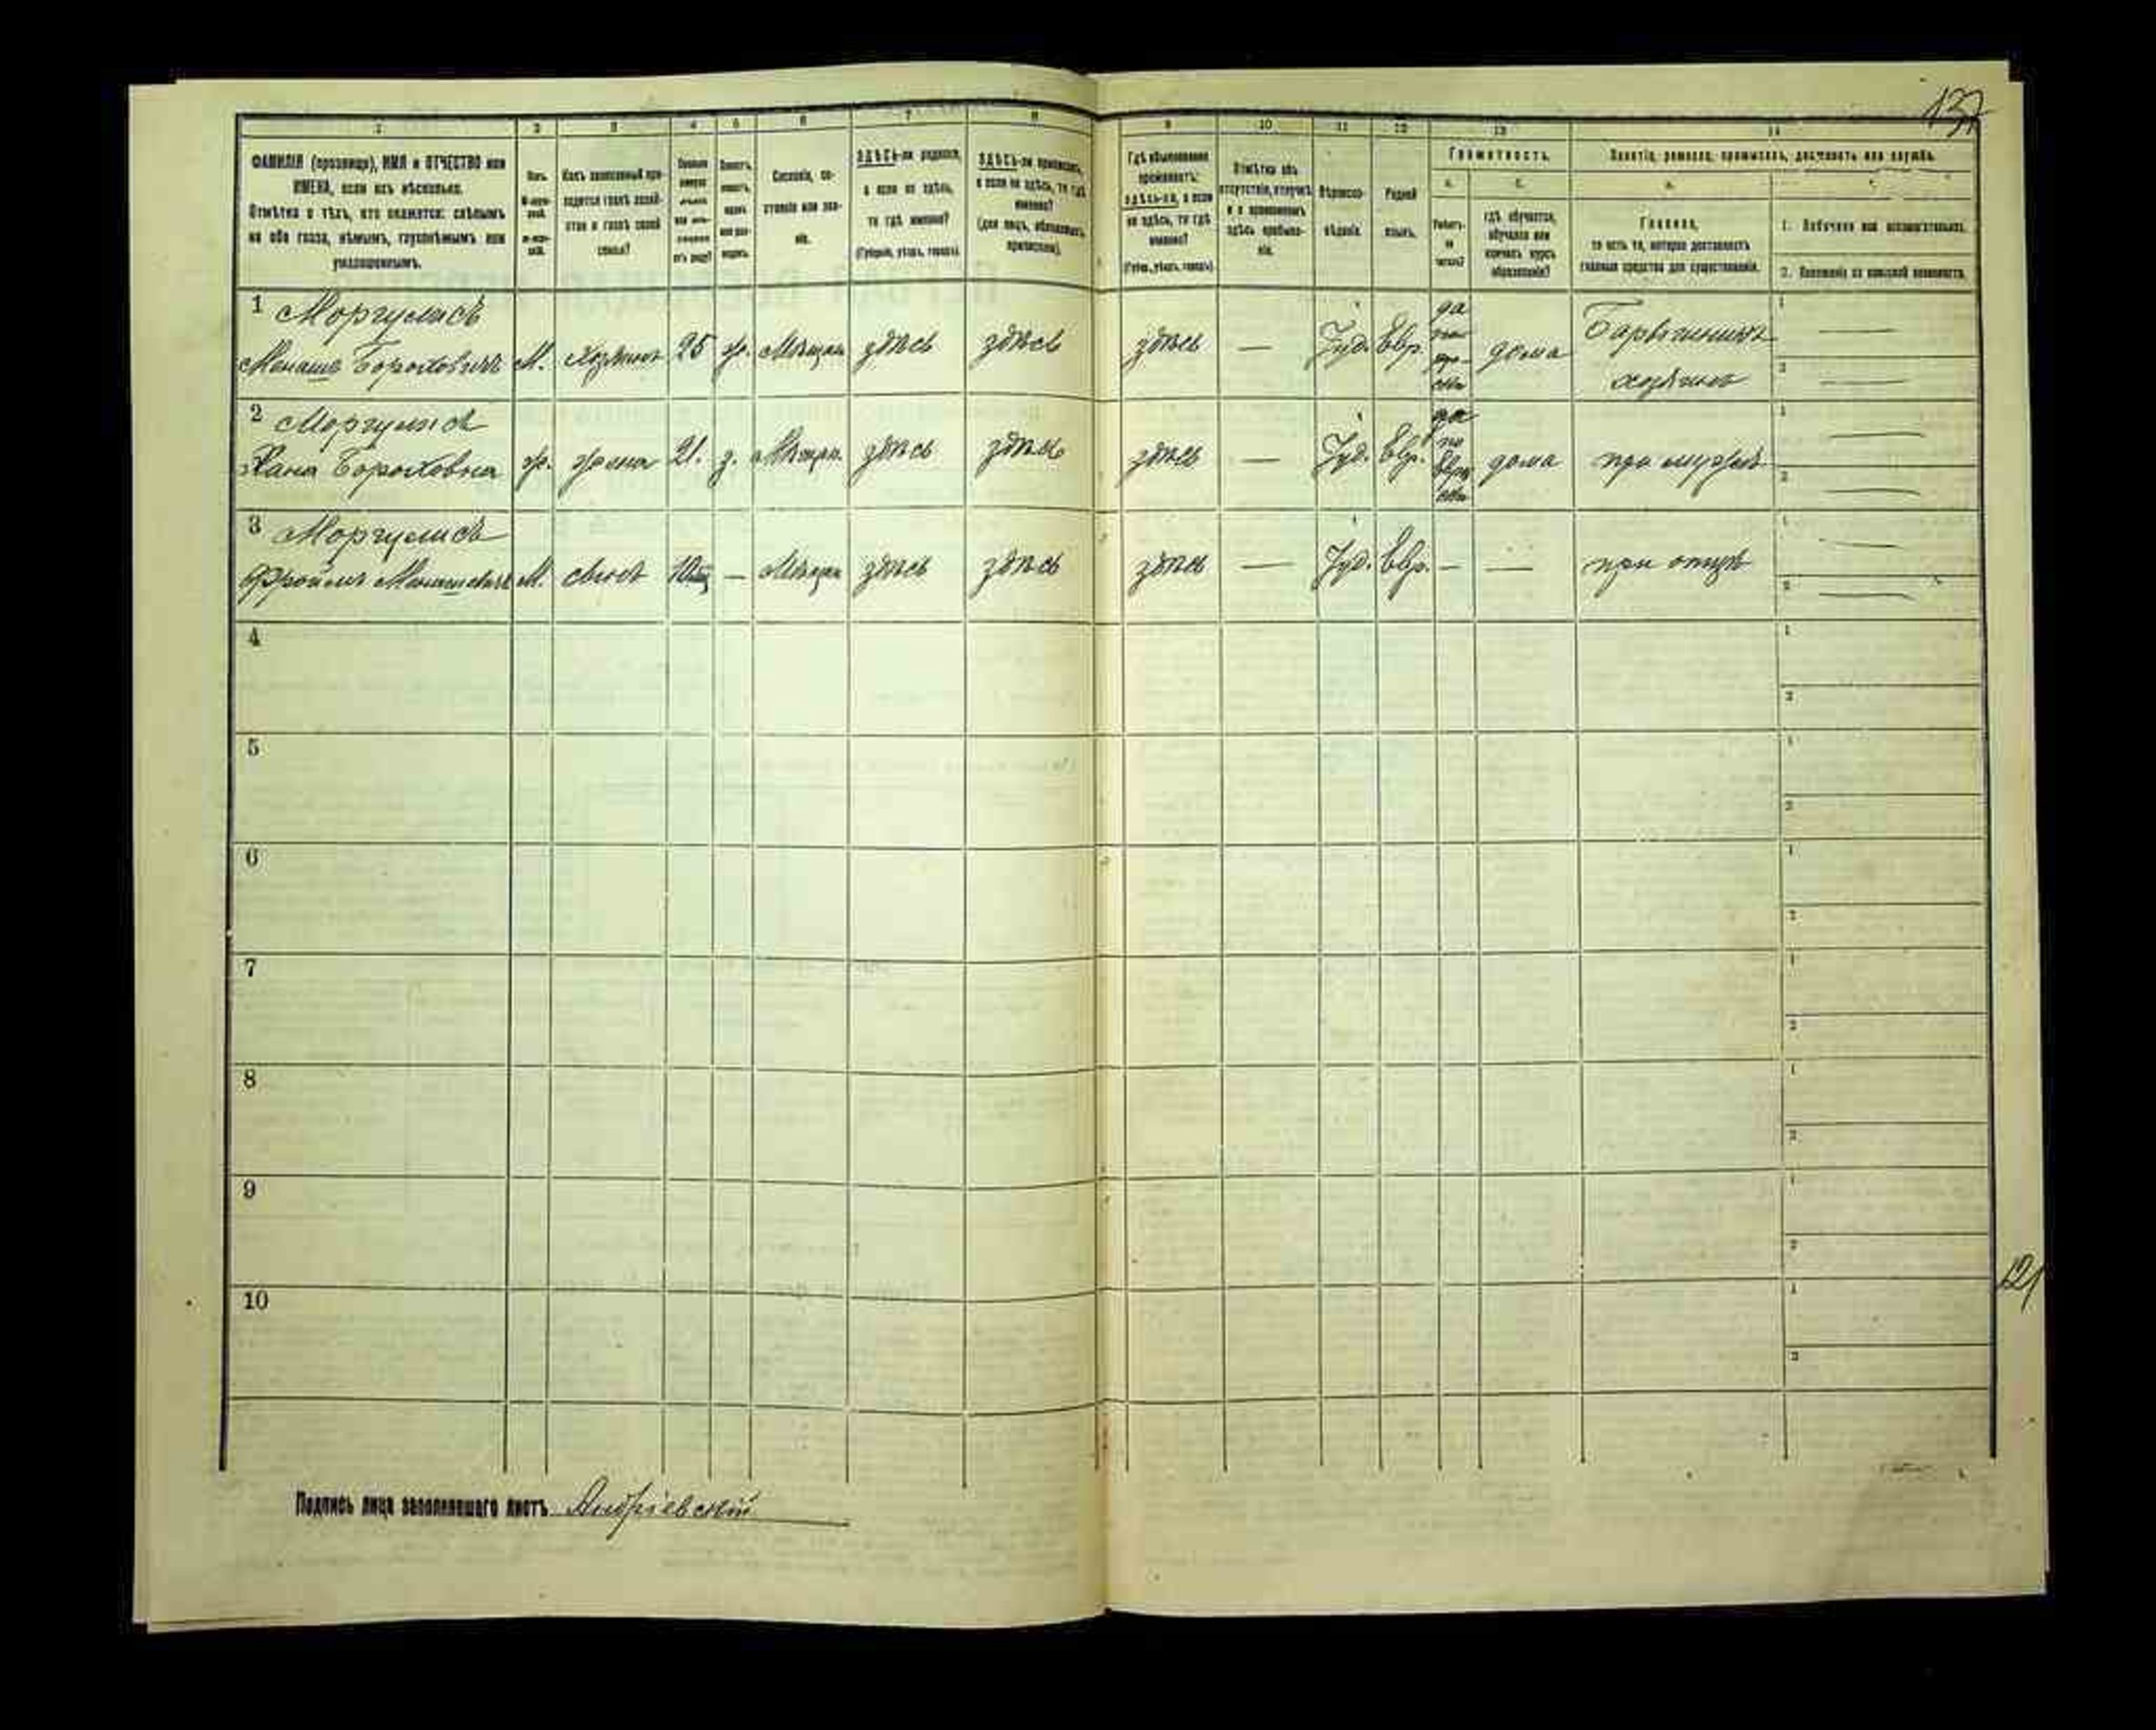 137
1 2 3 4 5 6 7 8 9 10 11 12 13 14
ФАМИЛІЯ (прозвище), ИМЯ и ОТЧЕСТВО или
ИМЕНА, если ихъ нѣсколько.
Отмѣтка о тѣхъ, кто окажется: слѣпымъ
на оба глаза, нѣмымъ, глухонѣмымъ или
умалишеннымъ.
Полъ.
Какъ записанный при-
ходится главѣ хозяй-
ства и главѣ своей
семьи?
Сословіе, со-
стояніе или зва-
ніе.
ЗДѢСЬ-ли родился,
а если не здѣсь,
то гдѣ именно?
(Губернія, уѣздъ, городъ).
ЗДѢСЬ-ли приписанъ,
а если не здѣсь, то гдѣ
именно?
(для лицъ, обязанныхъ
припискою).
Гдѣ обыкновенно
проживаетъ:
здѣсь-ли, а если
не здѣсь, то гдѣ
именно?
(Губер., уѣздъ, городъ).
Отмѣтка объ
отсутствіи, отлучкѣ
и о временномъ
здѣсь пребыва-
ніи.
Вѣроиспо-
вѣданіе.
Родной
языкъ.
Грамотность.
Умѣетъ-
ли
читать?
гдѣ обучается,
обучался или
кончилъ курсъ
образованія?
Занятіе, ремесло, промыселъ, должность или служба.
Главное,
то есть то, которое доставляетъ
главныя средства для существованія.
1. Побочное или вспомогательное.
2. Положеніе по воинской повинности.
1 Моргулисъ
Менаше Бороховичъ М. хозяинъ 25 ж. Мѣщан. здѣсь здѣсь здѣсь — Іуд. Евр. да дома хозяинъ
2 Моргулисъ
Хана Бороховна ж. жена 21. з. Мѣщан. здѣсь здѣсь здѣсь — Іуд. Евр. да по Еврейски дома при мужѣ
3 Моргулисъ
Фроимъ Менашевичъ М. сынъ — Мѣщан здѣсь здѣсь здѣсь — Іуд. Евр. — — при отцѣ
4
5
6
7
8
9
10
121
Подпись лица заполнявшаго листъ Андріевскій